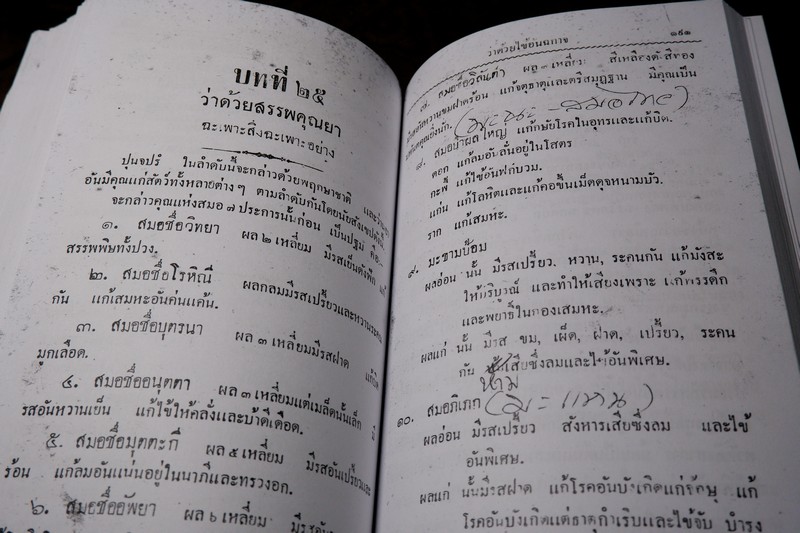 บทที่ ๒๕
ว่าด้วยสรรพคุณยา
ฉะเพาะสิ่งฉะเพาะอย่าง
ปุนจปรํ ในลำดับนี้จะกล่าวด้วยพฤกษาชาติ และ
อันมีคุณแก่สัตว์ทั้งหลายต่างๆ ตามลำดับกันโดยนัยสังเขปดังนี้
จะกล่าวคุณแห่งสมอ ๗ ประการนั้นก่อน เป็นปฐม คือ—
๑. สมอชื่อวิทยา ผล ๒ เหลี่ยม มีรสเย็น แก้
สรรพพิษทั้งปวง.
๒. สมอชื่อโรหิณี ผลกลมมีรสเปรี้ยวและหวานระคน
กัน แก้เสมหะอันค่นแค้น.
๓. สมอชื่อบุตรนา ผล ๓ เหลี่ยมมีรสฝาด แก้บิด
มูกเลือด.
๔. สมอชื่ออนุตตา ผล ๓ เหลี่ยมแต่เมล็ดนั้นเล็ก มี
รสอันหวานเย็น แก้ไข้ให้คลั่งและบ้าดีเดือด.
๕. สมอชื่อมุตตะกี ผล ๕ เหลี่ยม มีรสอันเปรี้ยวและ
ร้อน แก้ลมอันแน่นอยู่ในนาภีและทรวงอก.
๖. สมอชื่ออัพยา ผล ๖ เหลี่ยม มีรสอัน
ว่าด้วยไข้อันฉกาจ ๑๙๑
๗. สมอชื่อวิลันตา ผล เหลี่ยม สีเหลืองดังสีทอง
มีรสอันหวานขมฝาดร้อน แก้จตุธาตุและตรีสมุฏฐาน มีคุณเป็น
๘. สมอป่าผลใหญ่ แก้กษัยโรคในอุทรและแก้บิด.
ดอก แก้ลมอันลั่นอยู่ในโสตร
กะพี้ แก้ไข้อันฟกบวม.
แก่น แก้โลหิตและแก้คอขื่นเม็ดดุจหนามบัว.
ราก แก้เสมหะ.
๙. มะขามป้อม
ผลอ่อน นั้น มีรสเปรี้ยว, หวาน, ระคนกัน แก้มังสะ
ให้บริบูรณ์ และทำให้เสียงเพราะ แก้พรรดึก
และพยาธิในกองเสมหะ.
ผลแก่ นั้น มีรส ขม, เผ็ด, ฝาด, เปรี้ยว, ระคน
กัน เสียซึ่งลมและไข้อันพิเศษ.
ห้าม
๑๐. สมอภิเภก
ผลอ่อน มีรสเปรี้ยว สังหารเสียซึ่งลม และไข้
อันพิเศษ.
ผลแก่ นั้นมีรสฝาด แก้โรคอันบังเกิดแก่จักษุ แก้
โรคอันบังเกิดแต่ธาตุกำเริบและไข้จับ บำรุง